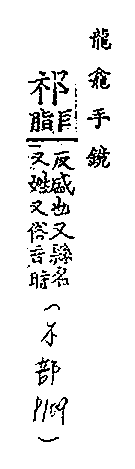 龍龕手鏡
祁
巨
脂
反盛也又縣名
又姓又俗音時
(ネ部P109)